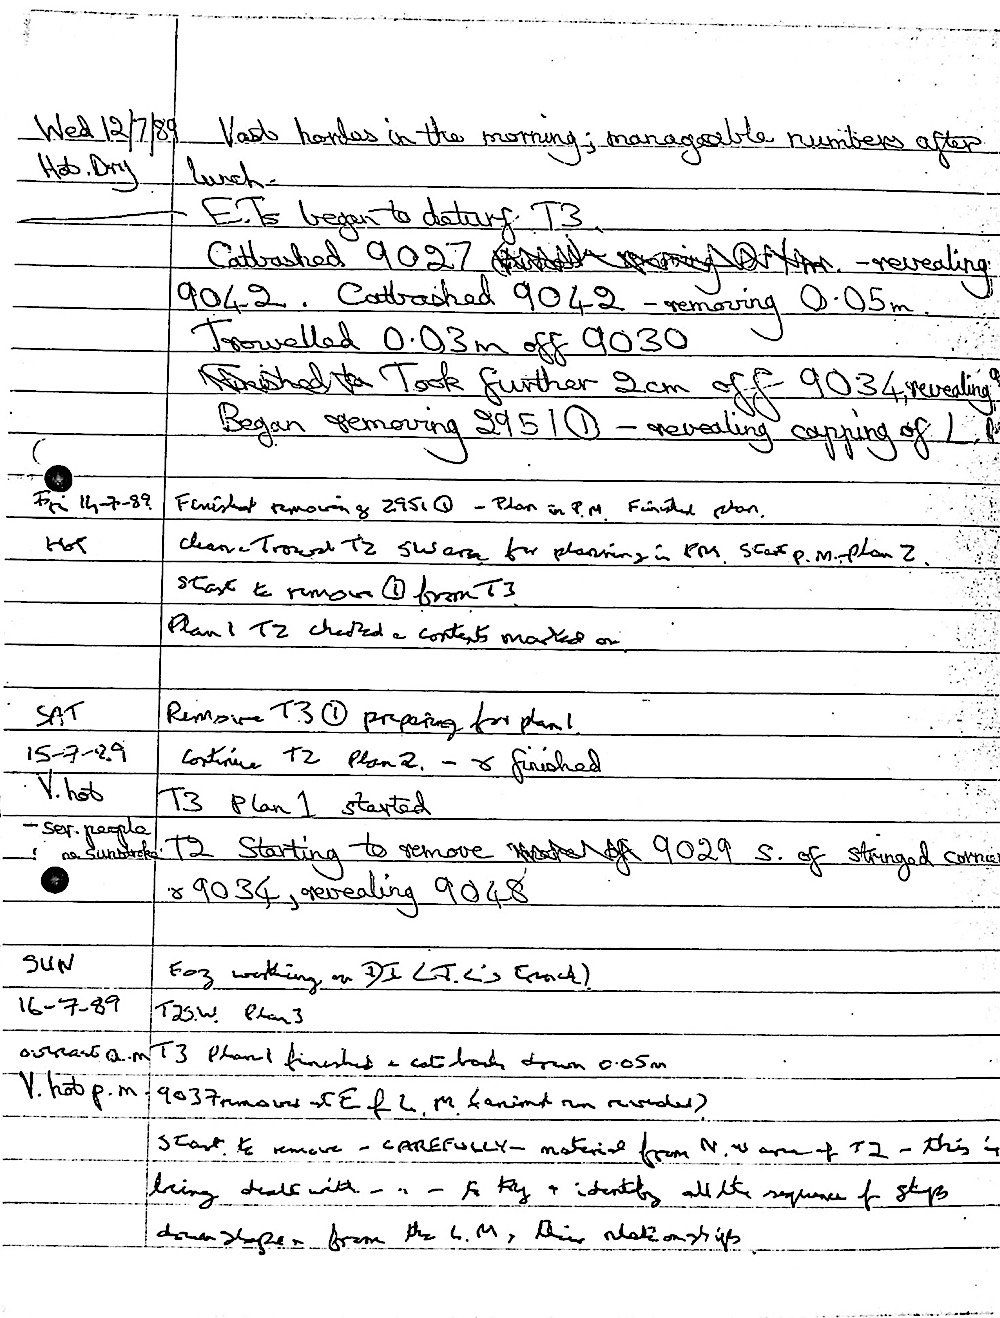 Wed 12/7/89 Vast hordes in the morning; manageable numbers after
Hot. Dry lunch-
E.Ts began to T3.
Catbrashed 9027 - revealing
9042. Catbrashed 9042 - removing 0.05m.
Trowelled 0.03m off 9030
Took further 2cm off 9034, revealing
Began removing 2951① - revealing capping of L.
Fri 14-7-89 Finished removing 2951① - Plan in P.M. Finished plan.
Hot clean & Trowel T2 SW area for planning in PM. Start p.m. plan 2.
start to remove ① from T3.
Plan 1 T2 checked & contexts marked on
SAT Remove T3① preparing for plan 1.
15-7-89 continue T2 Plan 2. - & finished
V. hot T3 Plan 1 started
- ser. people
! no sunstroke T2 Starting to remove 9029 S. of stringed corner
& 9034, revealing 9048
SUN working on
16-7-89 T2 S.W. Plan 3
overcast a.m T3 Plan 1 finished & cat back down 0.05m
V. hot p.m. 9037 removed at E of L.M.
Start to remove - CAREFULLY - material from N.W area of T2 - this is
being dealt with - to try & identify all the sequence of steps
downslope from the L.M, their relationships